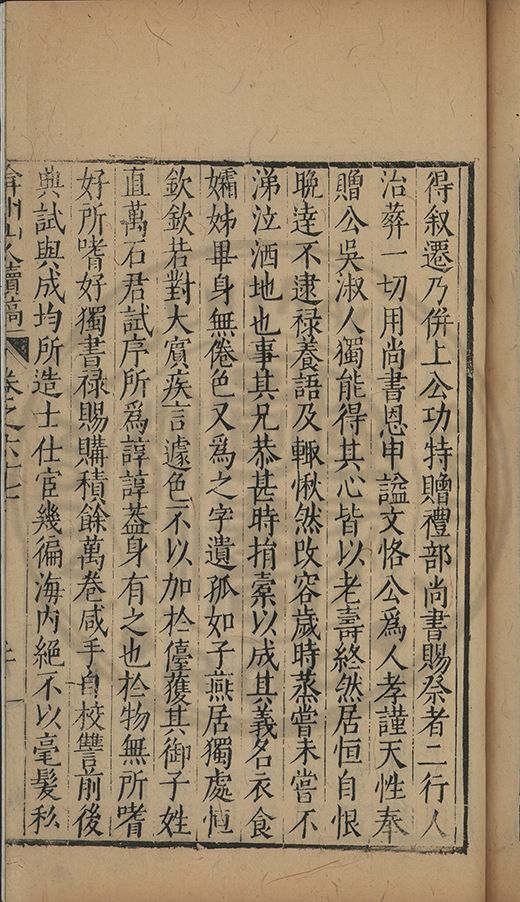 得叙遷乃併上公功特贈禮部尚書賜祭者二行人
治葬一切用尚書恩申謚文恪公爲人孝謹天性奉
贈公吳淑人獨能得其心皆以老壽終然居恒自恨
晚達不逮禄養語及輙愀然改容歲時蒸嘗未嘗不
涕泣洒地也事其兄恭甚時捐槖以成其義名衣食
孀姊畢身無倦色又爲之字遺孤如子燕居獨處恒
欽欽若對大賓疾言遽色不以加於僮獲其御子姓
直萬石君試序所爲諄諄葢身有之也於物無所嗜
好所嗜好獨書禄賜購積餘萬卷咸手自校讐前後
典試與成均所造士仕宦幾徧海内絕不以毫髮私
弇州山人續稿 卷之六十七